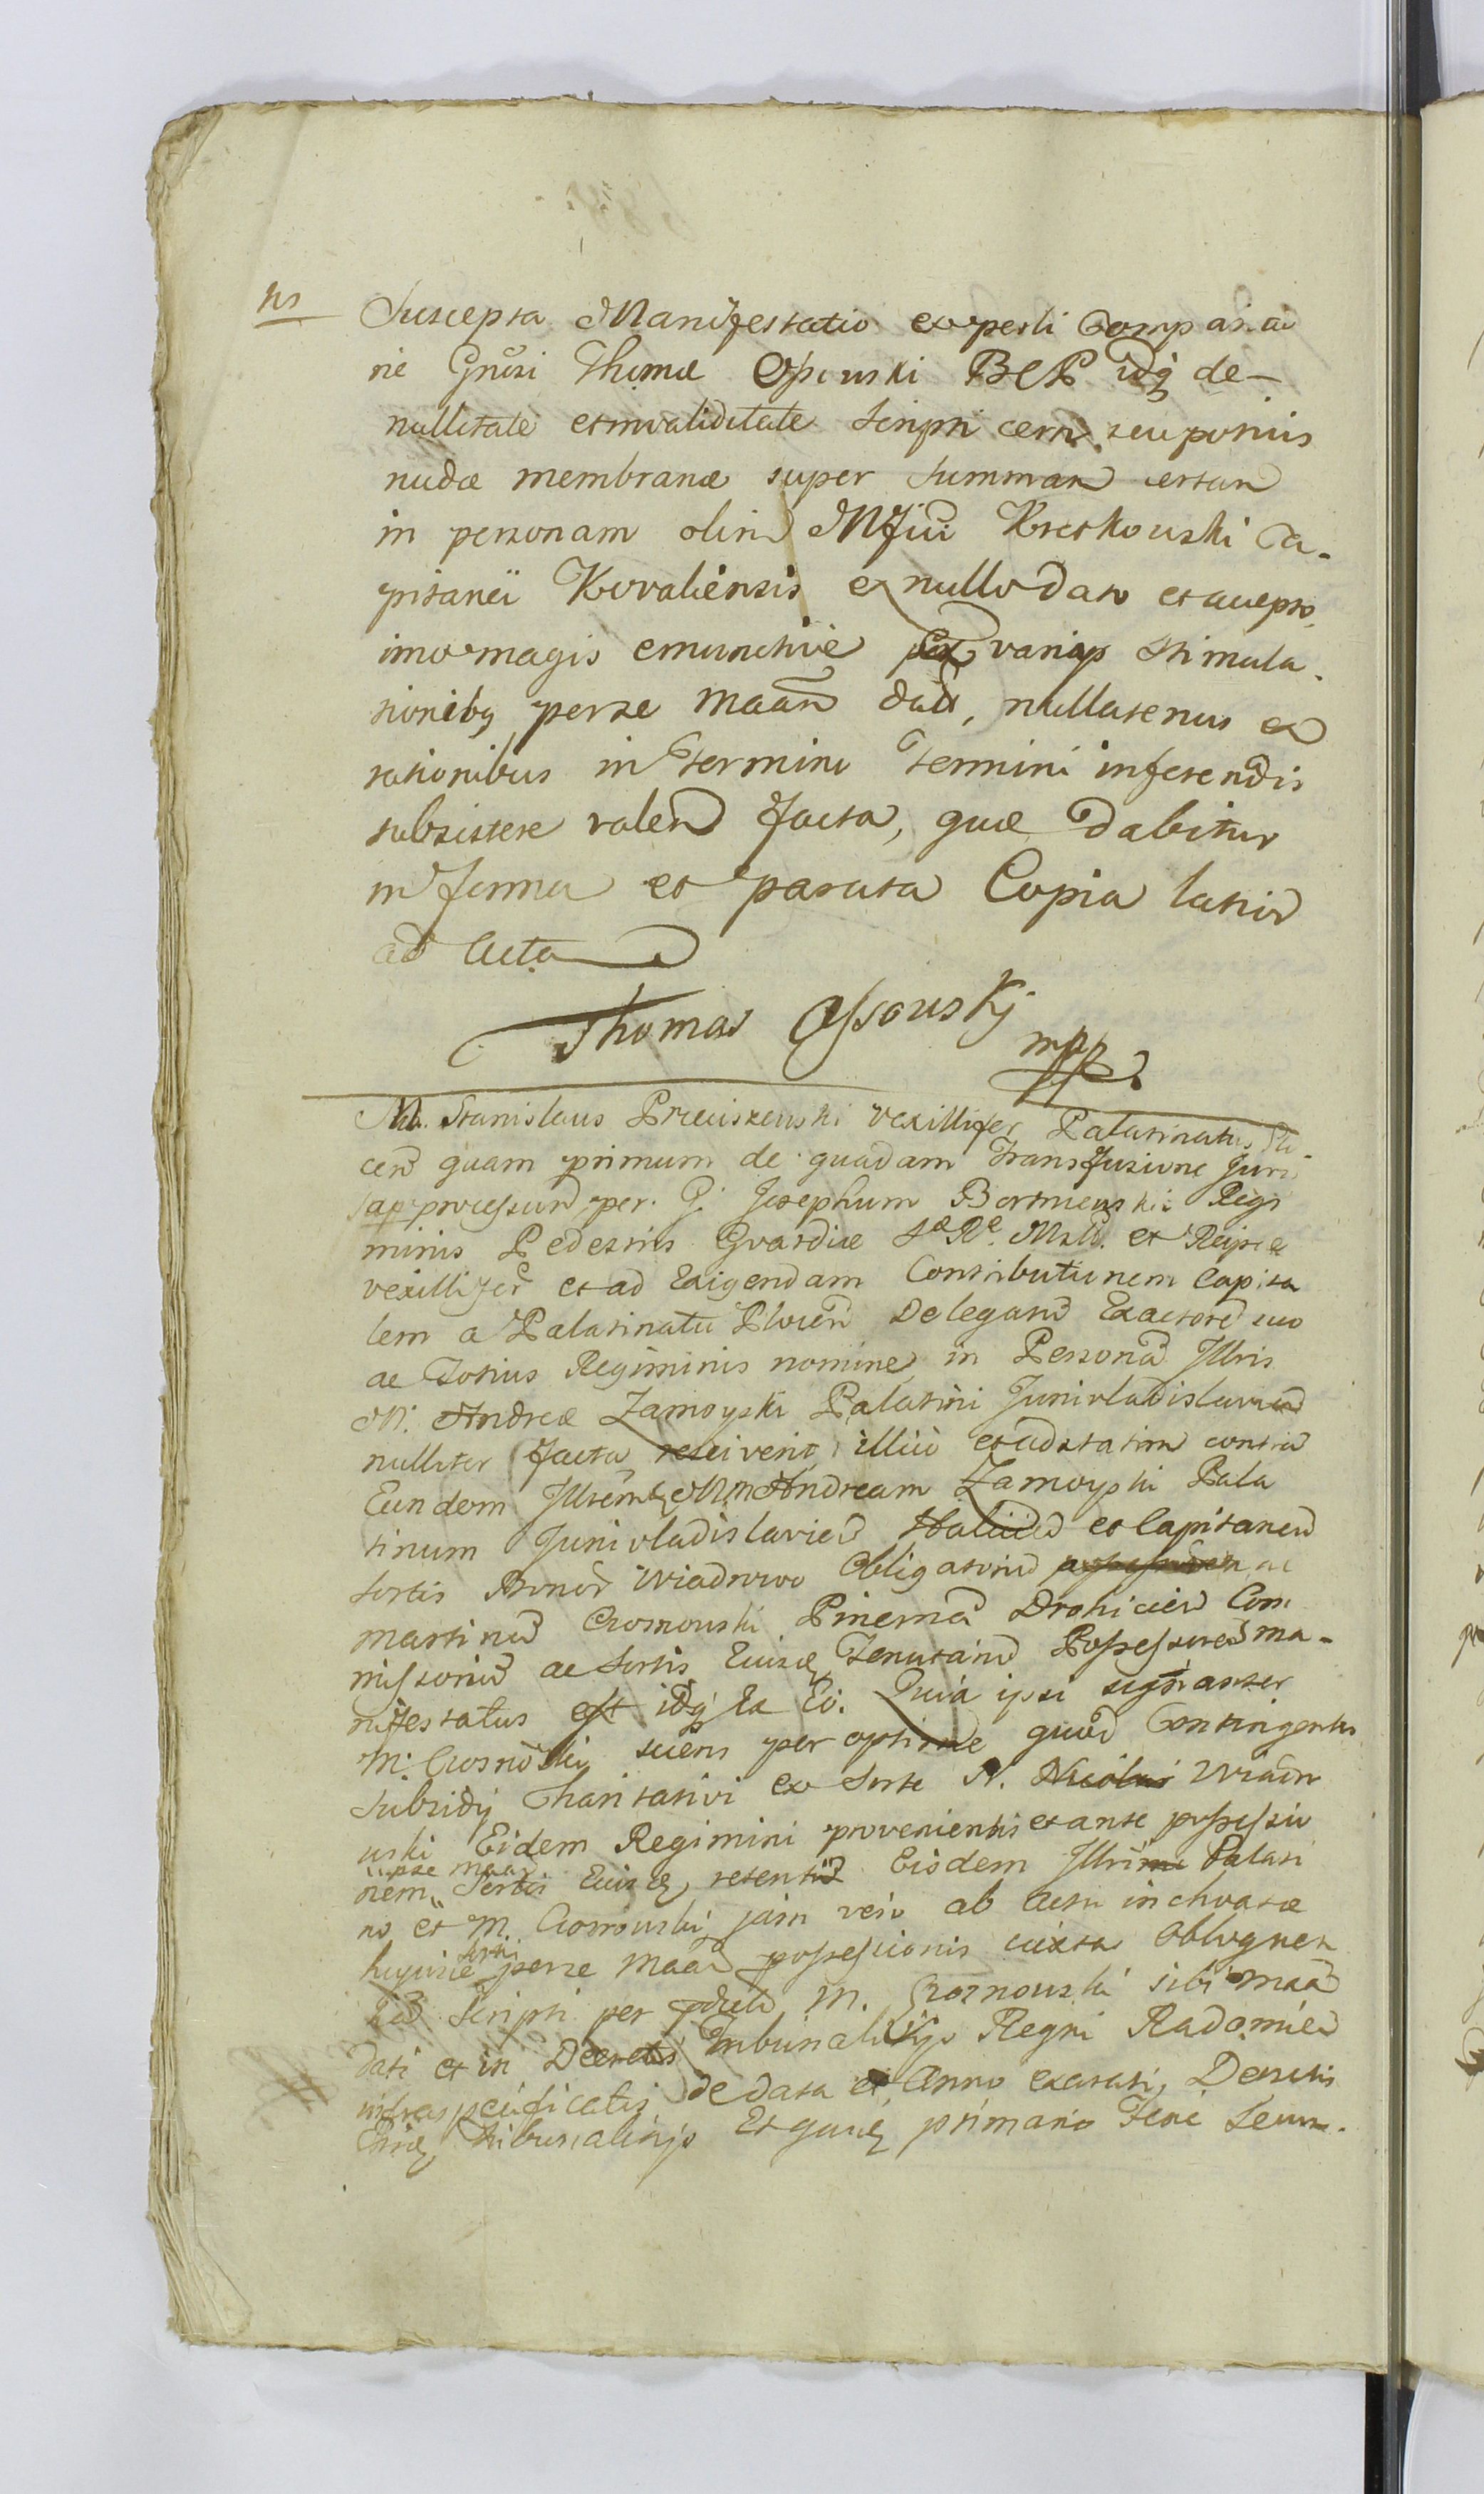 ns
Suscepta Manifestatio ex persli Comparao
ne Grũsi Thomæ Ossouski BCP idq de-
nullitate et invaliditate scripti certi seu potius
nudæ membranæ super summam certam
in personam olim Mfici Kretkouski Ca-
pitanei Kovaliensis ex nullo dato et accepto
imo magis emunctive variis stimula-
tionibq per se maañ dad, nullatenus ex
rationibus in termino termini inferendis
subsistere valeñ facta, quæ dabitur
in forma et parata Copia latiũ
ad Acta
Thomas Ossouskj
mpp
M. Stanislaus Preciszeuski Vexillifer Palatinatus Plo-
ceñ quam primum de quadam Transfusione Juris
processum per G. Josephum Bortnieuski Regi
minis Pedestris Gvardiæ Sæ Ræ Mtis. et Reipcæ
vexillifer et ad Exigendam Contributionem Capita
lem a Palatinatu Ploceñ Delegatũ Exactorẽ suo
ac Totius Regiminis nomine in Personã Jllris
M. Andreæ Zamoyski Palatini Junivladislavieñ
nulliter facta resciverit, illico et adstatim contra
Eundem Jllrem M Andream Zamoyski Pala
tinum Junivladislavieñ Haliciẽ et Capitaneũ
Sortis Bonor Wiadrowo Obligatoriũ ac
Martinũ Crosnouski Pincernã Drohicieñ Com
missoriũ ac Sortis Eiusdẽ Tenutariũ Possessores ma-
nifestatus est idq Ex Eo. Quia ipsi signanter
M. Crosnoski sciens per optime quod Contingentis
Subsidij Charitativi ex Sorte N. Nicolai Wiadr
uski Eidem Regimini provenientis et ante possessio
nem Sortis Eiusdẽ retentũ Eisdem Jllrime Palati
pse maañ
no et M. Crosnouski jam vero ab actu inchoatæ
hujusce per se Maañ possessionis iuxta Obloquen
Sortis
tiã Scripti per M. Crosnouski sibi maañ
dati et in Decretis Tribunalitijs Regni Radomieñ
infraspecificatis de data et Anno exarati, Decretis
Tribunalitijs Et quidẽ primario